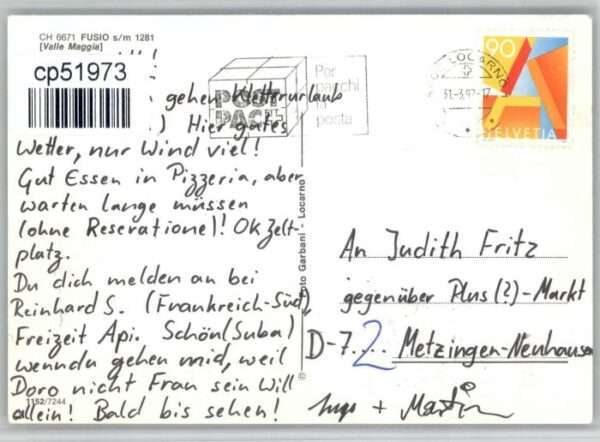 CH 6671 FUSIO s/m 1281
[Valle Maggia]
cp51973
gehen Kletterurlaub
) Hier gutes
Wetter, nur Wind viel!
Gut Essen in Pizzeria, aber
warten lange müssen
(ohne Reservatione)! Ok Zelt-
platz.
Du dich melden an bei
Reinhard S. (Frankreich-Süd),
Freizeit Api. Schön (Suba)
wenndu gehen mid, weil
Doro nicht Frau sein will
allein! Bald bis sehen!
1152/7244
Foto Garbani - Locarno
POST
PAC
Per
pacchi
posta
LOCARNO
90
HELVETIA
An Judith Fritz
gegenüber Plus (?)-Markt
D-7.... 2 Metzingen-Neuhausen
+ Martin